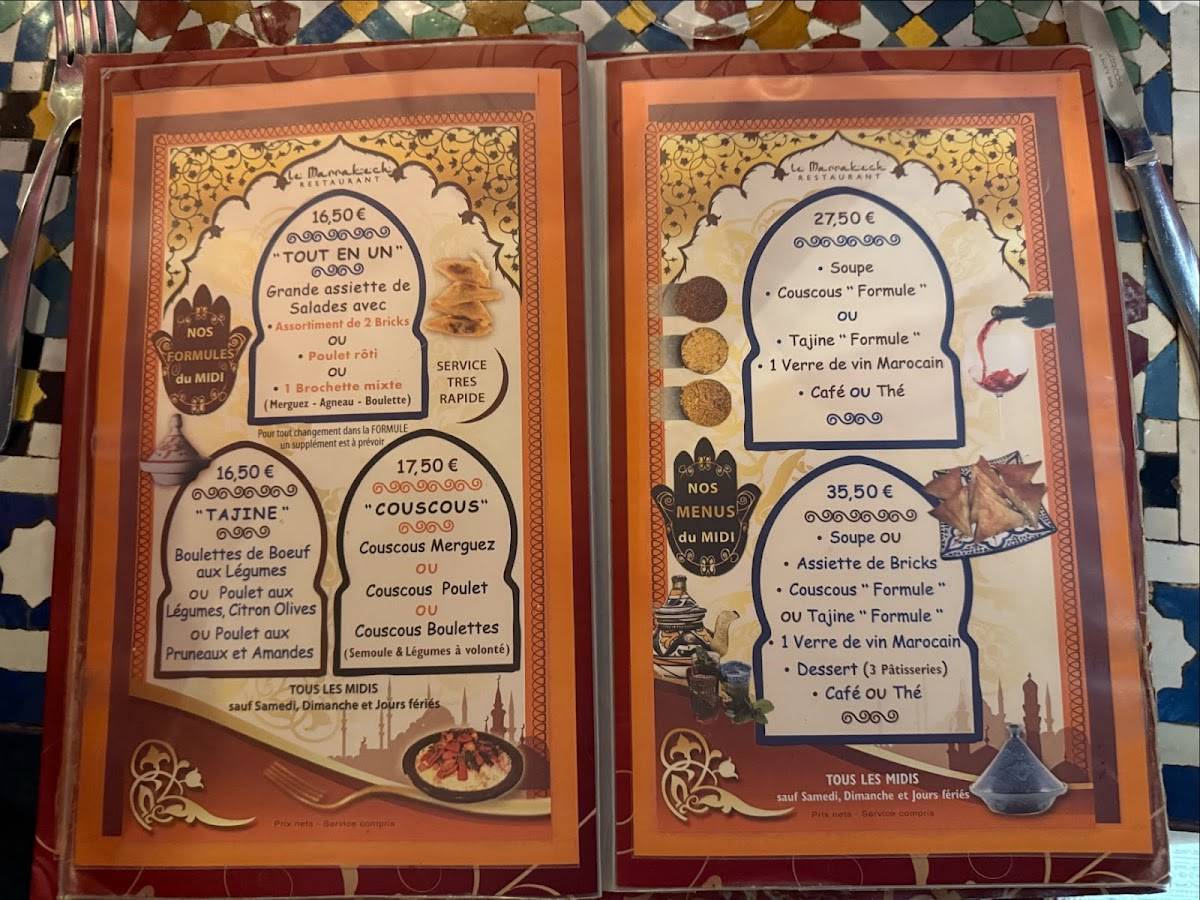 Le Marrakech
RESTAURANT
16,50 €
"TOUT EN UN"
Grande assiette de
Salades avec
• Assortiment de 2 Bricks
OU
• Poulet rôti
OU
• 1 Brochette mixte
(Merguez - Agneau - Boulette)
NOS
FORMULES
du MIDI
SERVICE
TRES
RAPIDE
Pour tout changement dans la FORMULE
un supplément est à prévoir
16,50 €
"TAJINE"
Boulettes de Boeuf
aux Légumes
OU Poulet aux
Légumes, Citron Olives
OU Poulet aux
Pruneaux et Amandes
17,50 €
"COUSCOUS"
Couscous Merguez
OU
Couscous Poulet
OU
Couscous Boulettes
(Semoule & Légumes à volonté)
TOUS LES MIDIS
sauf Samedi, Dimanche et Jours fériés
Prix nets - Service compris
Le Marrakech
RESTAURANT
27,50 €
• Soupe
• Couscous " Formule "
OU
• Tajine " Formule "
• 1 Verre de vin Marocain
• Café OU Thé
NOS
MENUS
du MIDI
35,50 €
• Soupe OU
• Assiette de Bricks
• Couscous " Formule "
OU Tajine " Formule "
• 1 Verre de vin Marocain
• Dessert (3 Pâtisseries)
• Café OU Thé
TOUS LES MIDIS
sauf Samedi, Dimanche et Jours fériés
Prix nets - Service compris